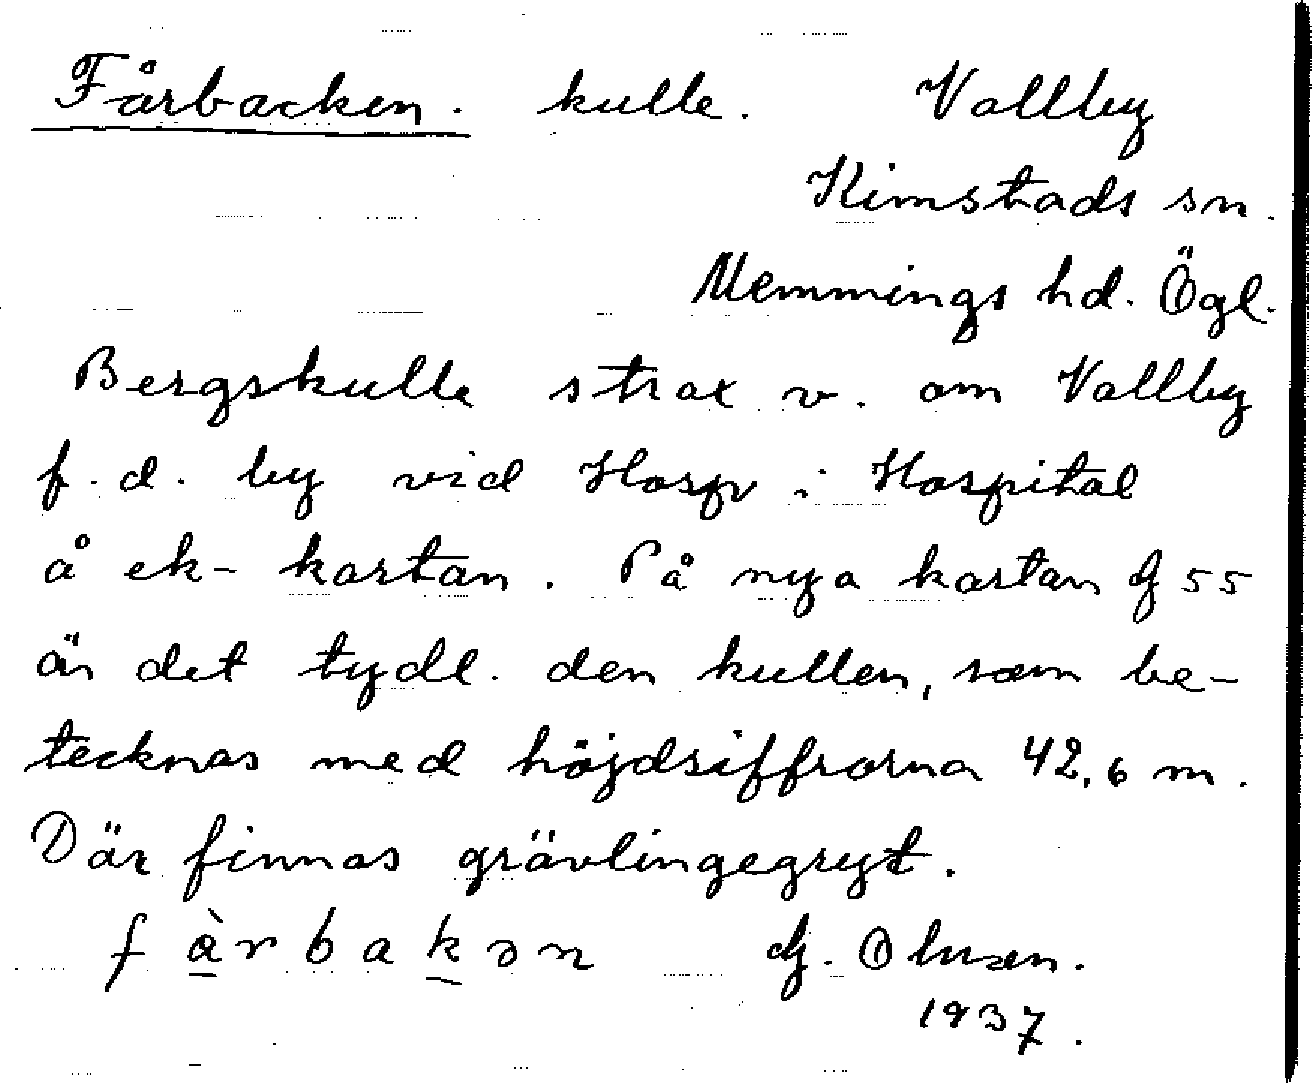 Fårbacken. kulle. Vallby
Kimstads sn.
Memmings hd. Ögl.
Bergskulle strax v. om Vallby
f.d. by vid Hosp i Hospital
å ek-kartan. På nya kartan J 55
är det tydl. den kullen, som be-
tecknas med höjdsiffrorna 42,6 m.
Där finnas grävlingegryt.
fàrbakən J. Olusen.
1937.